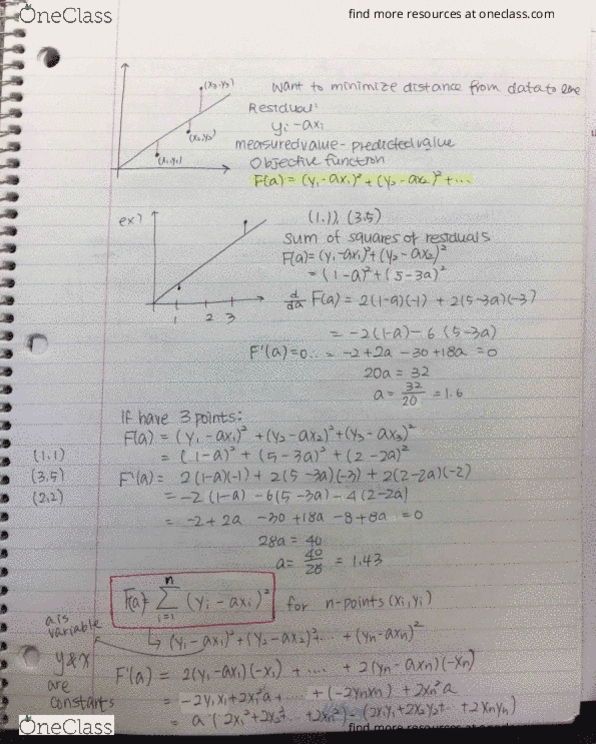 OneClass
find more resources at oneclass.com
(x₃,y₃)
(x₂,y₂)
(x₁,y₁)
Want to minimize distance from data to line
Residual:
yᵢ-axᵢ
measured value - predicted value
Objective function
F(a) = (y₁-ax₁)² + (y₂-ax₂)² + ...
ex)
1 2 3
(1,1), (3,5)
sum of squares of residuals
F(a) = (y₁-ax₁)² + (y₂-ax₂)²
= (1-a)² + (5-3a)²
d/da F(a) = 2(1-a)(-1) + 2(5-3a)(-3)
= -2(1-a) - 6(5-3a)
F'(a)=0... = -2+2a -30+18a = 0
20a = 32
a = 32/20 = 1.6
If have 3 points:
F(a) = (y₁-ax₁)² + (y₂-ax₂)² + (y₃-ax₃)²
(1,1)
= (1-a)² + (5-3a)² + (2-2a)²
(3,5)
F'(a) = 2(1-a)(-1) + 2(5-3a)(-3) + 2(2-2a)(-2)
(2,2)
= -2(1-a) -6(5-3a) -4(2-2a)
= -2+2a -30+18a -8+8a = 0
28a = 40
a = 40/28 = 1.43
F(a) = Σ (yᵢ-axᵢ)² for n-points (xᵢ,yᵢ)
n
i=1
a is
variable
↳ (y₁-ax₁)² + (y₂-ax₂)² + ... + (yn-axn)²
y & x
are
constants
F'(a) = 2(y₁-ax₁)(-x₁) + .... + 2(yn-axn)(-xn)
= -2y₁x₁+2x₁²a + .... + (-2ynxn) + 2xn²a
= a(2x₁²+2x₂²+ ... +2xn²) - (2x₁y₁+2x₂y₂+ ... +2xnyn)
OneClass
find more resources at oneclass.com